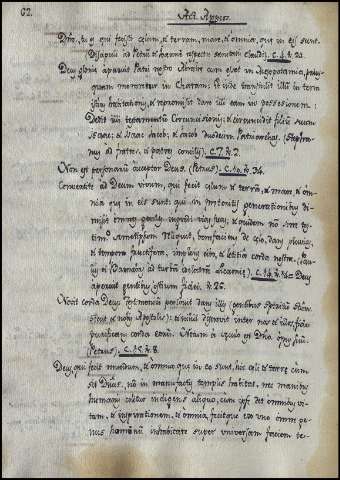 62. Act. Apost.
Dne, tu es qui fecisti celum, et terram, mare, et omnia, que in eis sunt.
Discipuli ad Petri et Joannis aspectu claudi). C. 4. v. 24.
Deus glorie apparuit Patri nostro Abrahe cum esset in Mesopotamia, prius
quam moraretur in Charam: et inde transtulit illum in terra
hanc habitationis, et repromisit dare illi eam in possessionem:
Dedit illi testamentum Circumcisionis; et circumcidit filium suum
Isaac; et Isaac Jacob; et Jacob duodecim Patriarchas. (Steph
nus ad fratres, et patres concilij). C. 7. v. 2.
Non est personarum acceptor Deus. (Petrus). C. 10. v. 34.
Converti ad Deum vivum, qui fecit celum et terra, et mare, et om
nia que in eis sunt: qui in preteritis generationibus di
misit omnes gentes ingredi vias suas; et quidem non sine tes
timo semetipsum reliquit, benefaciens de celo, dans pluvias,
et tempora fructifera, implens cibo, et letitia corda nostra. (Pau
lus et Barnabas ad turbas). C. 14. v. 14. = Deus
aperuit gentibus ostium fidei. v. 26.
Novit corda Deus testimonium perhibuit dans illis (gentibus Spiritum Sanc
tum et nobis Apostolis): et nihil discrevit inter nos et illos, fide
purificans corda eorum. Notum a seculo est Dno opus suum.
Petrus). C. 15. v. 8.
Deus, qui fecit mundum, et omnia que in eo sunt, hic celi et terre cum
sit Dnus, non in manufactis templis habitat, nec manibus
humanis colitur indigens aliquo, cum ipse det omnibus vi-
tam, et inspirationem, et omnia, fecitque ex uno omne ge-
nus hominum inhabitare super universam faciem ter-